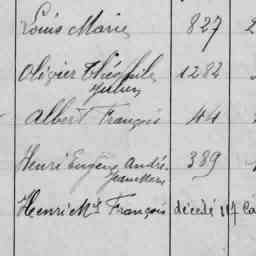 Louis Marie 827 2
Olivier Théophile 1282
Julien
Albert François 44
Henri Eugène André 389
Jean Marie
Henri Mie François décédé 117 Ca